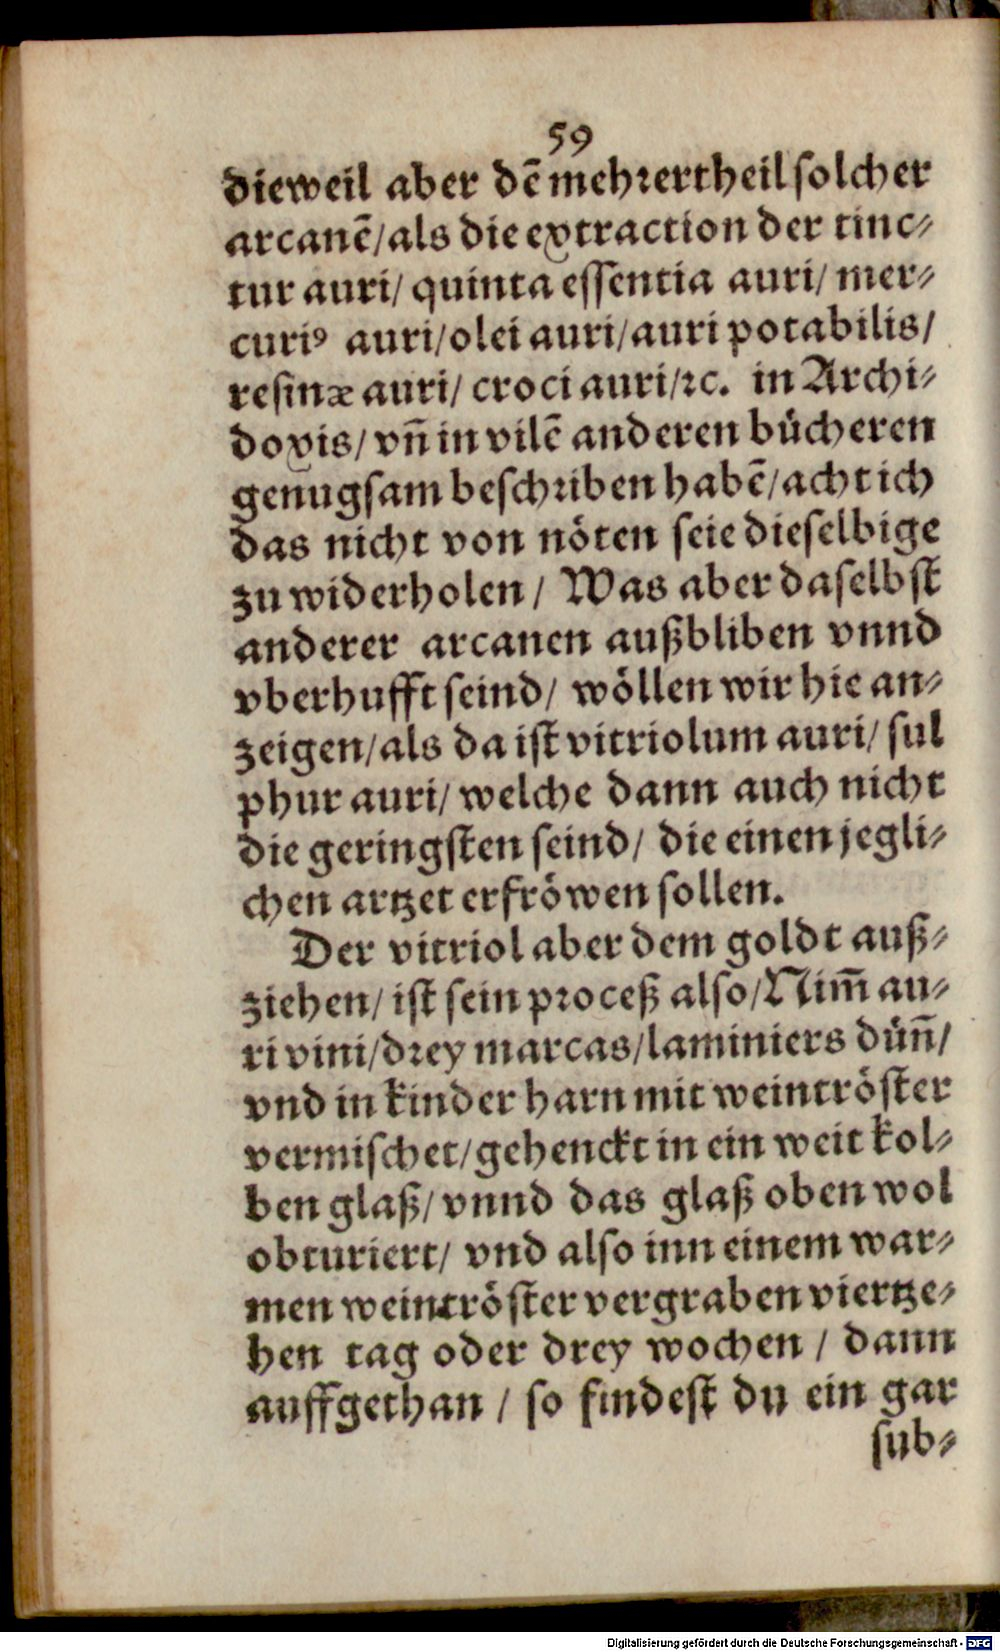 59
dieweil aber dē mehꝛertheil solcher
arcanē/als die extraction der tinc⸗
tur auri/ quinta essentia auri/ mer⸗
curiꝰ auri/olei auri/auri potabilis/
resinæ auri/ croci auri/ꝛc. in Archi⸗
doxis/ vñ in vilē anderen bücheren
genugsam beschꝛiben habē/acht ich
das nicht von nöten seie dieselbige
zu widerholen/ Was aber daselbst
anderer arcanen außbliben vnnd
vberhufft seind/ wöllen wir hie an⸗
zeigen/als da ist vitriolum auri/ sul
phur auri/ welche dann auch nicht
die geringsten seind/ die einen jegli⸗
chen artzet erfröwen sollen.
Der vitriol aber dem goldt auß⸗
ziehen/ ist sein pꝛoceß also/Nim̄ au⸗
ri vini/dꝛey marcas/laminiers düñ/
vnd in kinder harn mit weintröster
vermischet/gehenckt in ein weit kol⸗
ben glaß/ vnnd das glaß oben wol
obturiert/ vnd also inn einem war⸗
men weintröster vergraben viertze⸗
hen tag oder drey wochen / dann
auffgethan / so findest du ein gar
sub⸗
Digitalisierung gefördert durch die Deutsche Forschungsgemeinschaft - DFG